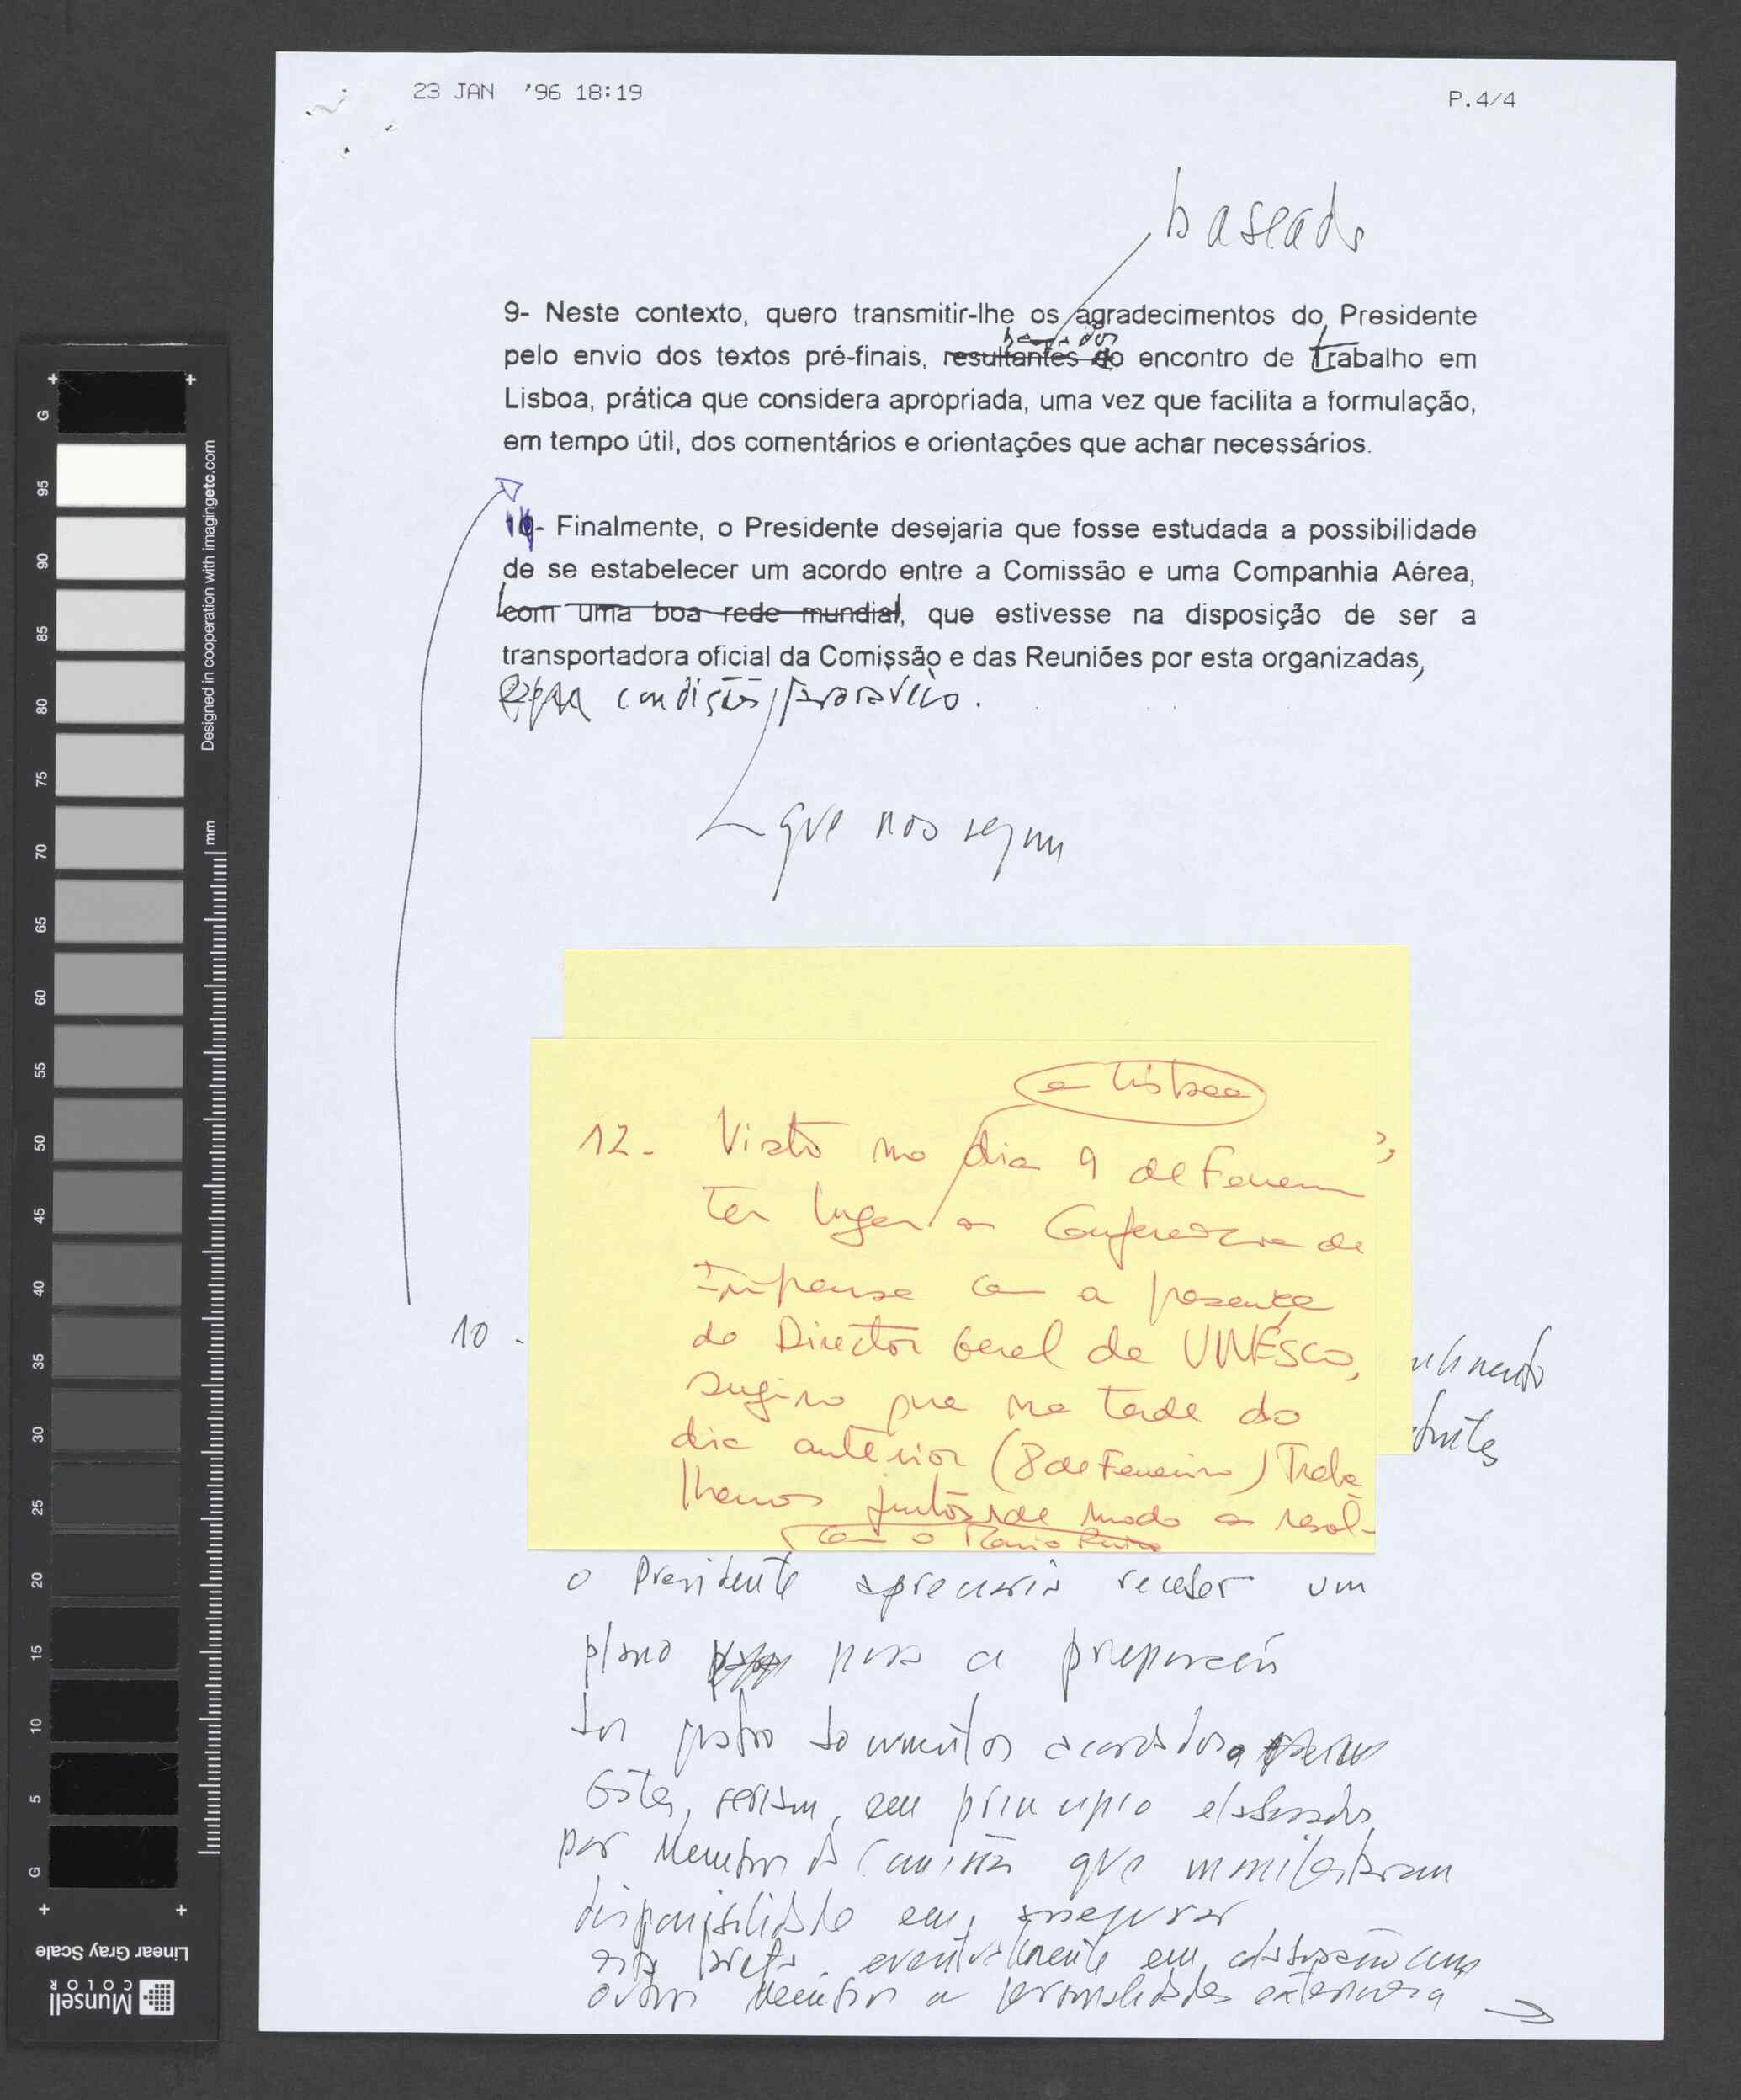 23 JAN '96 18:19
P.4/4
baseado
9- Neste contexto, quero transmitir-lhe os agradecimentos do Presidente
baseados
pelo envio dos textos pré-finais, resultantes do encontro de Trabalho em
Lisboa, prática que considera apropriada, uma vez que facilita a formulação,
em tempo útil, dos comentários e orientações que achar necessários.
10- Finalmente, o Presidente desejaria que fosse estudada a possibilidade
de se estabelecer um acordo entre a Comissão e uma Companhia Aérea,
com uma boa rede mundial, que estivesse na disposição de ser a
transportadora oficial da Comissão e das Reuniões por esta organizadas,
condições favoráveis.
que nos
12- Visto no dia 9 de Fevereiro
em Lisboa
ter lugar a Conferência de
Imprensa com a presença
do Director Geral da UNESCO,
10-
sugiro que na tarde do
dia anterior (8 de Fevereiro) Traba
lhemos juntos de modo a resol-
com o Mário
o Presidente apreciaria receber um
plano para a preparação
dos quatro documentos acordados
Estes, seriam, em princípio elaborados
por Membros da Comissão que manifestaram
disponibilidade em assegurar
esta tarefa, eventualmente em com
outros membros
Designed in cooperation with imagingetc.com
mm
G 95 90 85 80 75 70 65 60 55 50 45 40 35 30 25 20 15 10 5 G
Linear Gray Scale
Munsell
COLOR